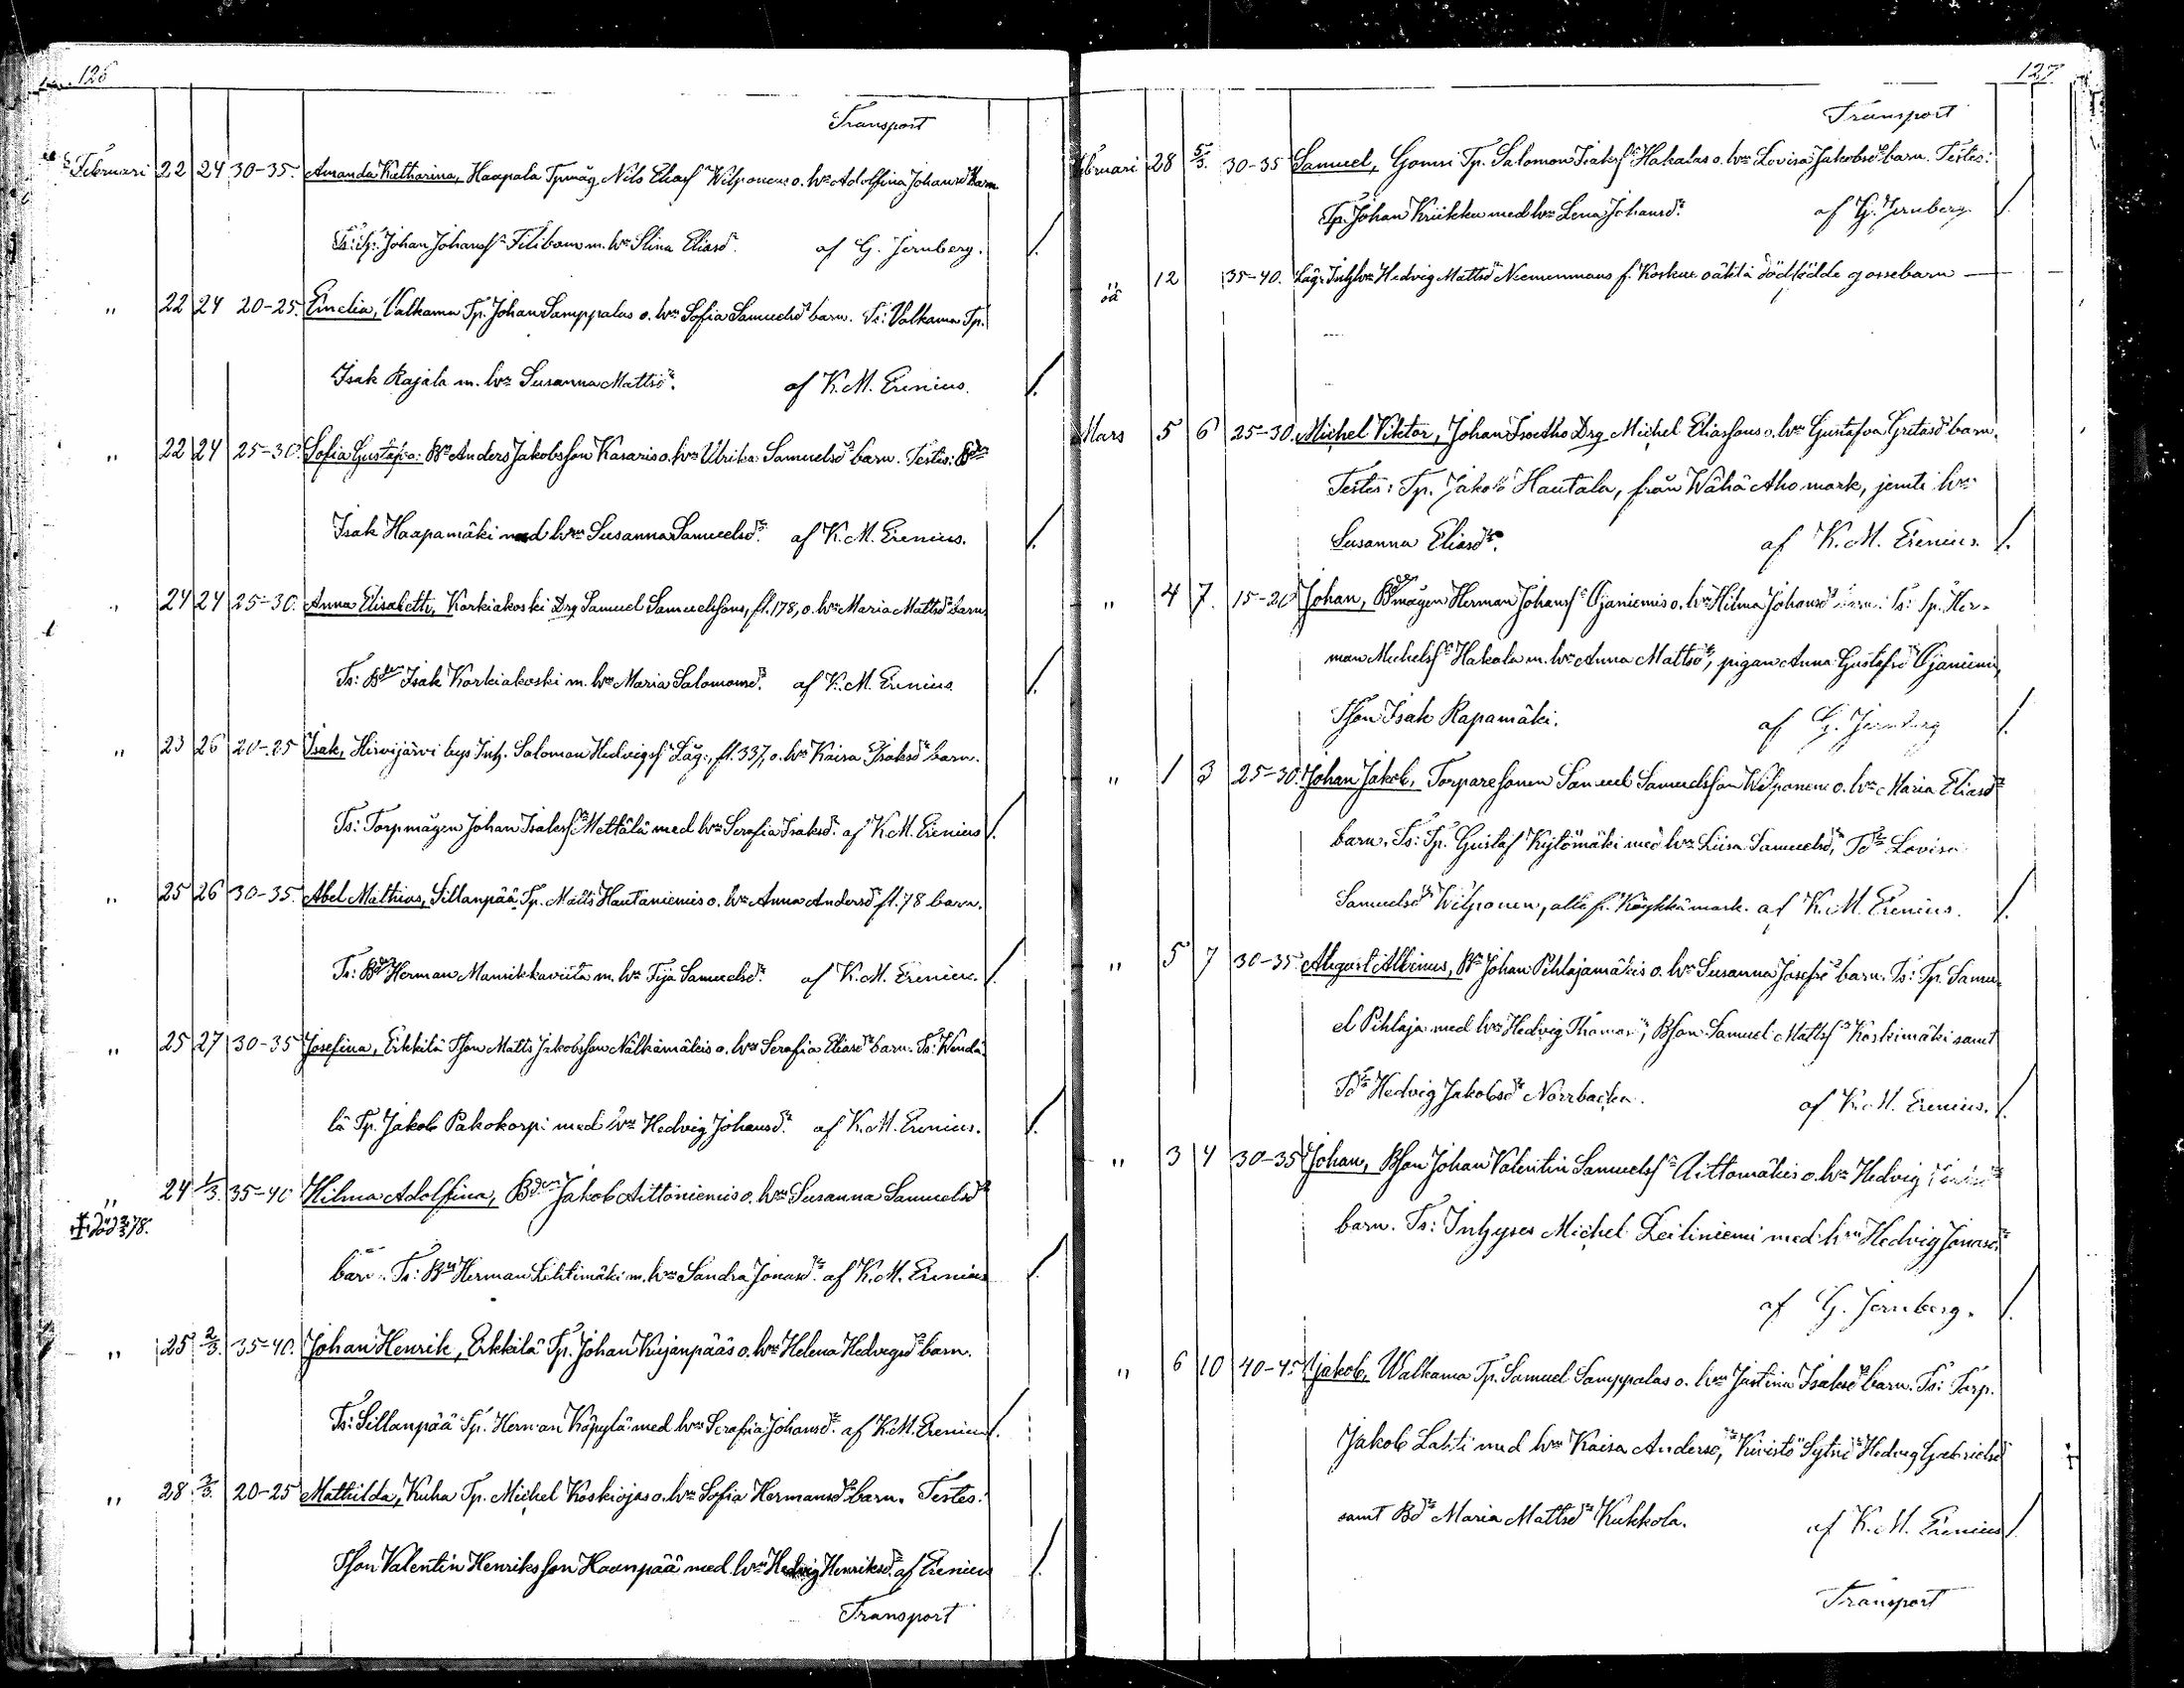 126
Transport
Februari 22 24 30-35. Amanda Katharina, Haapala Tpmåg Nils Eliasſn Wilponens o. hn Adolfina Johansdr barn
Ts: Tp. Johan Johansſn Filibom m. hn Stina Eliasdr. af G. Jernberg.
" 22 24 20-25. Emelia, Valkama Tp. Johan Samppalas o. hn Sofia Samuelsdr barn. Ts: Valkama Tp.
Isak Rajala m. hn Susanna Mattsdr. af K. M. Erenius.
" 22 24 25-30. Sofia Gustafva: Bn Anders Jakobsson Kasaris o. hn Ulrika Samuelsdr barn. Testes: Bden
Isak Haapamäki med hn Susanna Samuelsdr. af K. M. Erenius.
" 24 24 25-30. Anna Elisabeth, Korkiakoski Drg Samuel Samuelssons, fl. 178, o. hn Maria Mattsdr barn
Ts: Bden Isak Korkiakoski m. hn Maria Salomonsdr. af K. M. Erenius.
" 23 26 20-25 Isak, Hirvijärvi bys Inh. Salomon Hedvigsſn Låg:, fl. 337, o. hn Kaisa Isaksdr barn.
Ts: Torpmågen Johan Isaksſn Mettälä med hn Serafia Isaksdr. af K. M. Erenius
" 25 26 30-35. Abel Mathias, Sillanpää Tp. Matts Hautaniemis o. hn Anna Andersdr fl. 78 barn.
Ts: Bden Herman Mansikkaviita m. hn Fija Samuelsdr. af K. M. Erenius.
" 25 27 30-35 Josefina, Erkkilä Tson Matts Jakobsson Nälkämäkis o. hn Serafia Eliasdr barn. Ts: Wendä
lä Tp. Jakob Pakokorpi med hn Hedvig Johansdr. af K. M. Erenius.
" 24 1/3. 35-40 Hilma Adolfina, Bden Jakob Aittoniemis o. hn Susanna Samuelsdr
barn. Ts: Bn Herman Lehtimäki m. hn Sandra Jonasdr. af K. M. Erenius
" 25 2/3. 35-40. Johan Henrik, Erkkilä Tp. Johan Kujanpääs o. hn Helena Hedvigsdr barn.
Ts: Sillanpää Tp. Herman Käpylä med hn Serafia Johansdr. af K. M. Erenius
" 28 3/3. 20-25 Mathilda, Kuha Tp. Michel Koskiojas o. hn Sofia Hermansdr barn. Testes:
Tson Valentin Henriksson Haanpää med hn Hedvig Henriksdr. af Erenius
Transport
127
Transport
Februari 28 5/3. 30-35 Samuel, Gomsi Tp. Salomon Isaksſn Hakalas o. hn Lovisa Jakobsdr barn. Testes:
Tp. Johan Kriikku med hn Lena Johansdr. af G. Jernberg.
" oä 12 35-40. Låg. Inhhn Hedvig Mattsdr Niemenmaas f. Koskue oäkta dödfödde gossebarn
Mars 5 6 25-30. Michel Viktor, Johan Isoaho Drg Michel Eliassons o. hn Gustafva Gretasdr barn.
Testes: Tp. Jakob Hautala, från Wähä Aho mark, jemte hn
Susanna Eliasdr. af K. M. Erenius.
" 4 7. 15-20 Johan, Bdemågen Herman Johansſn Ojaniemis o. hn Hilma Johansdr barn. Ts: Tp. Her-
man Michelsſn Hakala m. hn Anna Mattsdr, pigan Anna Gustafsdr Ojaniemi,
Tson Isak Rapamäki. af G. Jernberg
" 1 3 25-30. Johan Jakob, Torparesonen Samuel Samuelsson Wilponens o. hn Maria Eliasdr
barn. Ts: Tp. Gustaf Kytömäki med hn Liisa Samuelsdr, Tdr Lovisa
Samuelsdr Wilponen, alla fr. Köykkä mark. af K. M. Erenius.
" 5 7 30-35. August Albinus, Bn Johan Pihlajamäkis o. hn Susanna Josefsdr barn. Ts: Tp. Samu-
el Pihlaja med hn Hedvig Thomasdr, Bson Samuel Mattsſn Koskimäki samt
Tdr Hedvig Jakobsdr Norrbacka. af K. M. Erenius.
" 3 4 30-35 Johan, Bson Johan Valentin Samuelsſn Aittomäkis o. hn Hedvig
barn. Ts: Inhyses Michel Leiliniemi med hn Hedvig Jonasdr.
af G. Jernberg.
" 6 10 40-45 Jakob, Walkama Tp. Samuel Samppalas o. hn Justina Isaksdr barn. Ts: Torp.
Jakob Lahti med hn Kaisa Andersdr, Kuristo Sytni Hedvig Gabrielsdr
samt Bdr Maria Mattsdr Kukkola. af K. M. Erenius
Transport